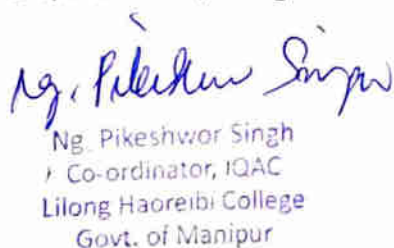 Ng. Pikeshwor Singh
Ng Pikeshwor Singh
Co-ordinator, IQAC
Lilong Haoreibi College
Govt. of Manipur